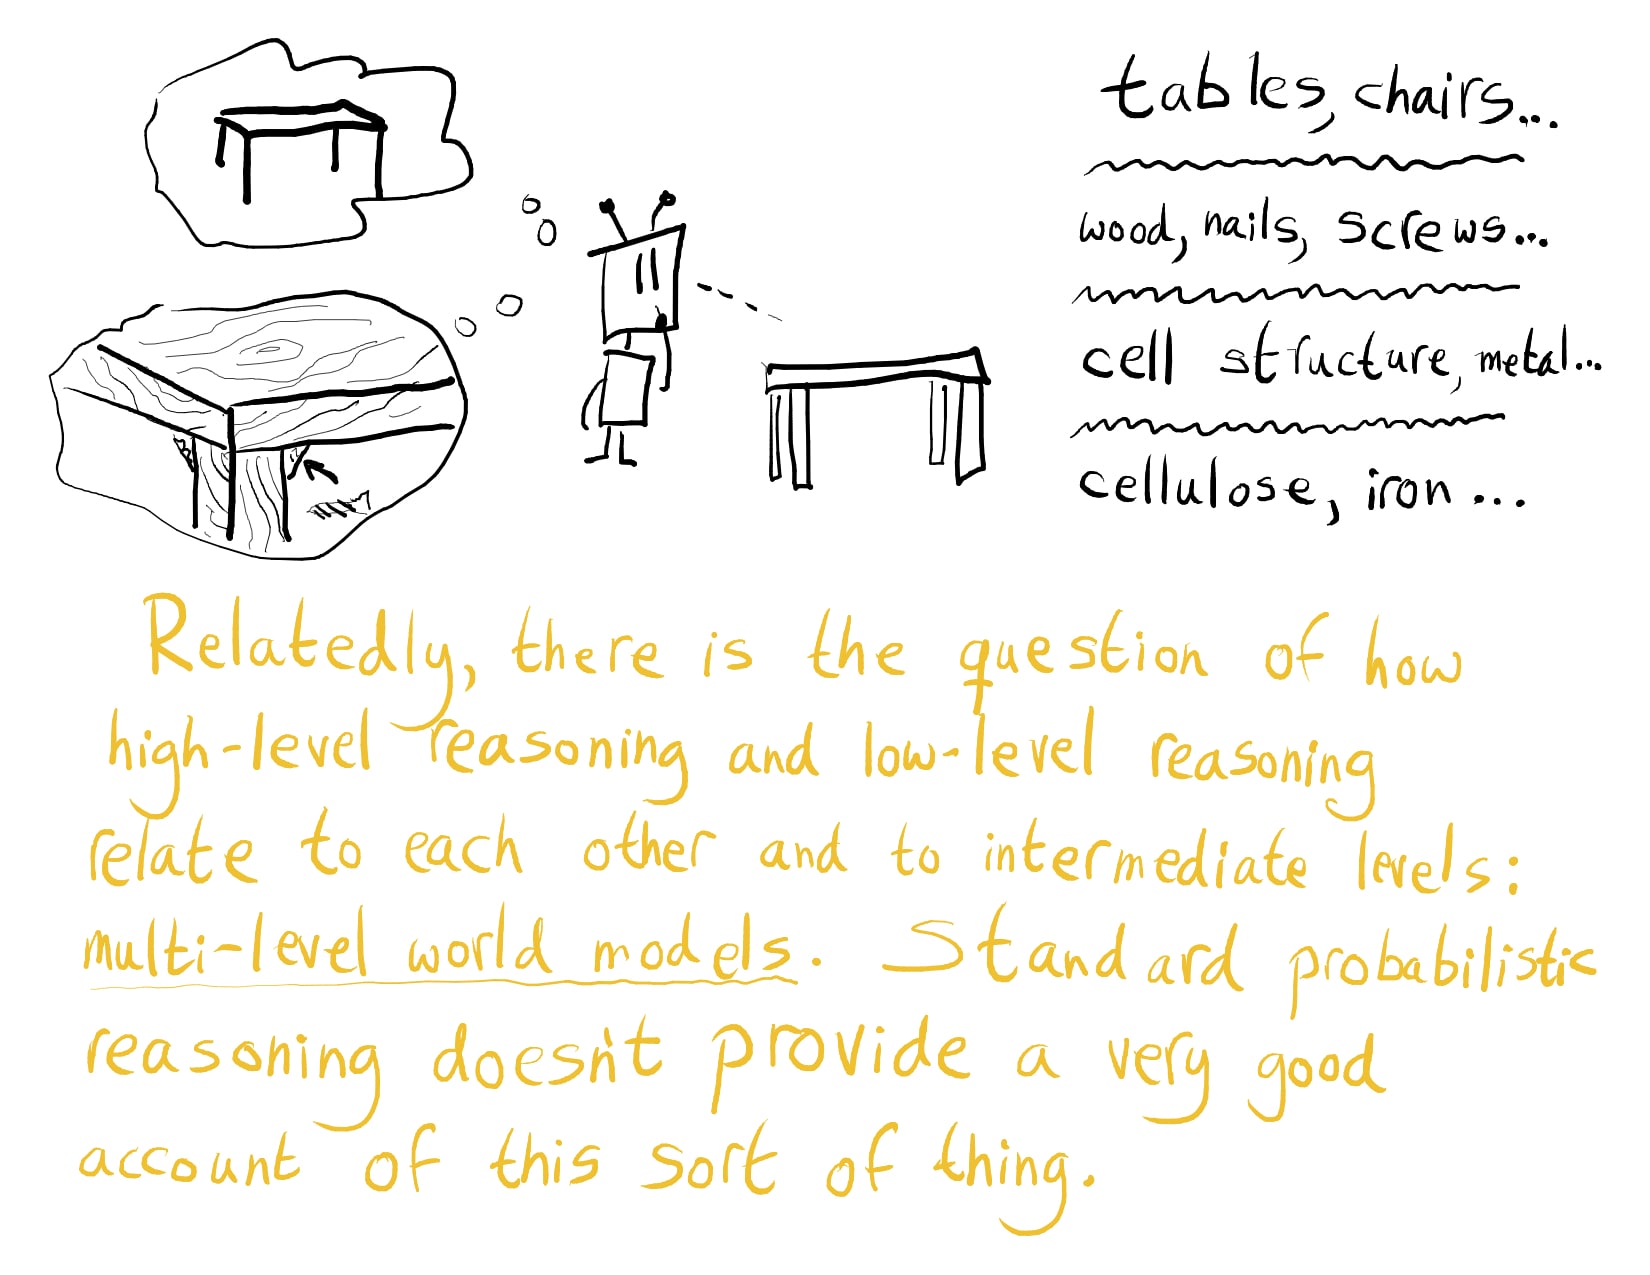 tables, chairs...
wood, nails, screws...
cell structure, metal...
cellulose, iron...
Relatedly, there is the question of how
high-level reasoning and low-level reasoning
relate to each other and to intermediate levels:
multi-level world models. Standard probabilistic
reasoning doesn't provide a very good
account of this sort of thing.